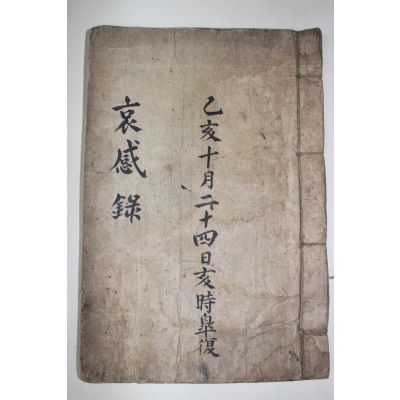 乙亥十月二十四日亥時皐復
哀感錄